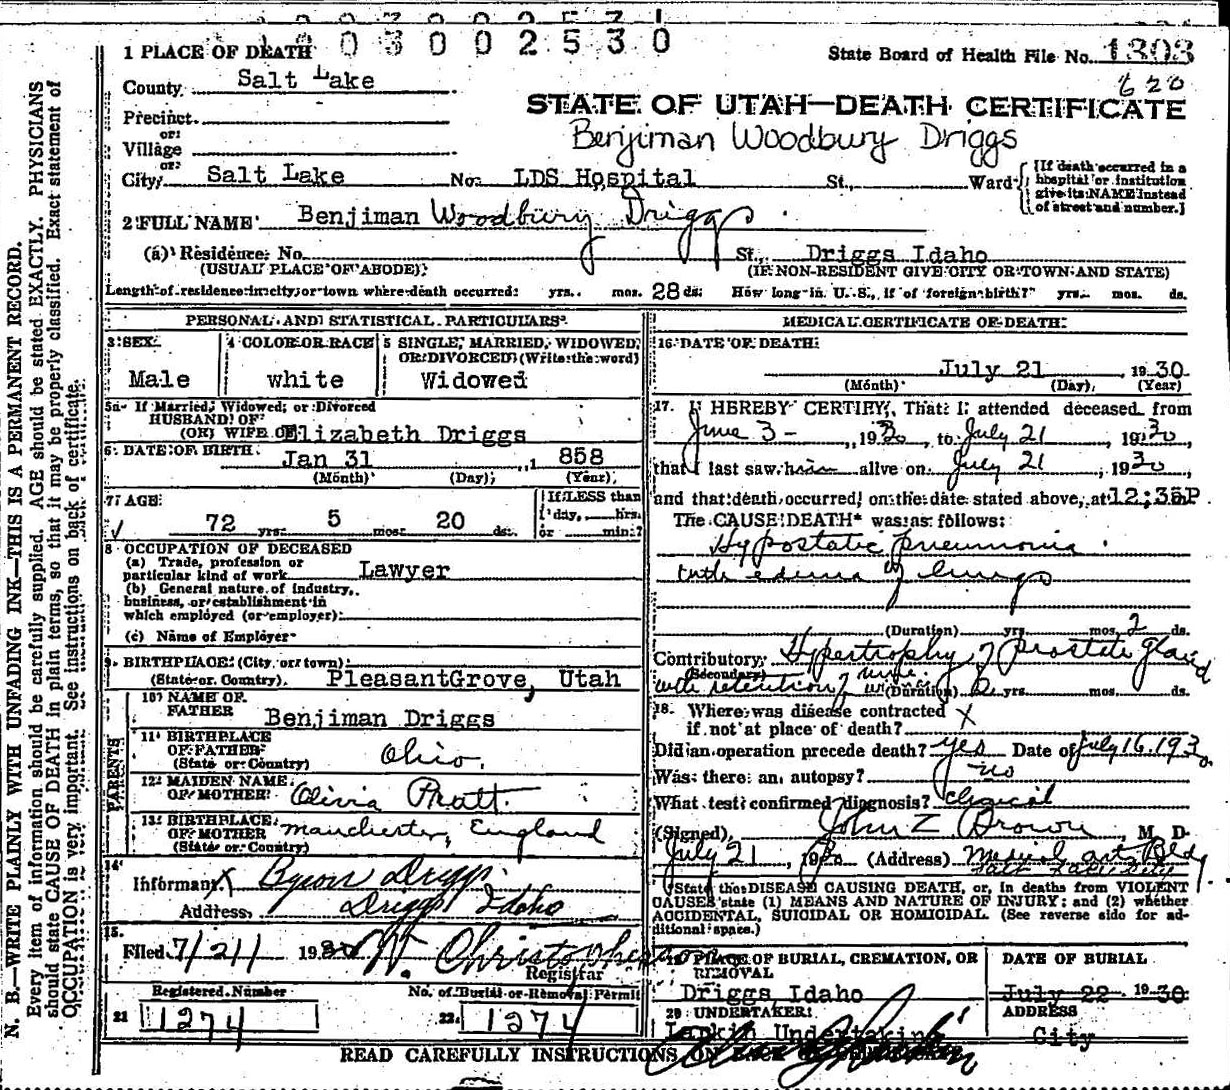 1003002530
1 PLACE OF DEATH
State Board of Health File No. 1303
County Salt Lake
620
STATE OF UTAH—DEATH CERTIFICATE
Precinct
or
Village
Benjiman Woodbury Driggs
or
City Salt Lake No. LDS Hospital St., Ward
[If death occurred in a hospital or institution give its NAME instead of street and number.]
2 FULL NAME Benjiman Woodbury Driggs
(a) Residence No. St., Driggs Idaho
(USUAL PLACE OF ABODE) (IF NON-RESIDENT GIVE CITY OR TOWN AND STATE)
Length of residence in city or town where death occurred yrs. mos. 28 ds. How long in U. S., if of foreign birth? yrs. mos. ds.
PERSONAL AND STATISTICAL PARTICULARS
3 SEX 4 COLOR OR RACE 5 SINGLE, MARRIED, WIDOWED,
OR DIVORCED (Write the word)
Male white Widowed
5a If Married, Widowed, or Divorced
HUSBAND OF
(OR) WIFE OF Elizabeth Driggs
6 DATE OF BIRTH Jan 31, 1858
(Month) (Day) (Year)
7 AGE If LESS than
1 day, hrs.
72 yrs. 5 mos. 20 ds. or min.?
8 OCCUPATION OF DECEASED
(a) Trade, profession or
particular kind of work Lawyer
(b) General nature of industry,
business, or establishment in
which employed (or employer)
(c) Name of Employer
9 BIRTHPLACE (City or town)
(State or Country) PleasantGrove, Utah
PARENTS
10 NAME OF
FATHER Benjiman Driggs
11 BIRTHPLACE
OF FATHER Ohio.
(State or Country)
12 MAIDEN NAME
OF MOTHER Olivia Pratt.
13 BIRTHPLACE
OF MOTHER Manchester, England
(State or Country)
14
Informant X Byron Driggs
Address, Driggs Idaho
15
Filed 7/21/ 1930 W. Christopherson
Registrar
Registered Number No. of Burial or Removal Permit
21 1274 22 1274
MEDICAL CERTIFICATE OF DEATH
16 DATE OF DEATH
July 21, 1930
(Month) (Day) (Year)
17. I HEREBY CERTIFY, That I attended deceased from
June 3-, 1930, to July 21, 1930,
that I last saw him alive on July 21, 1930,
and that death occurred, on the date stated above, at 12;35P.
The CAUSE DEATH* was as follows:
Hypostatic pneumonia.
with edema of lungs
(Duration) yrs. mos. 2 ds.
Contributory Hypertrophy of prostate gland
(Secondary)
with retention of urine (Duration) yrs. mos. ds.
18. Where was disease contracted X
if not at place of death?
Did an operation precede death? yes Date of July 16, 1930
Was there an autopsy? no
What test confirmed diagnosis? clinical
(Signed) John Z Brown, M. D.
July 21, 1930 (Address) Medical arts Bldg
Salt Lake City
*State the DISEASE CAUSING DEATH, or, in deaths from VIOLENT
CAUSES state (1) MEANS AND NATURE OF INJURY; and (2) whether
ACCIDENTAL, SUICIDAL OR HOMICIDAL. (See reverse side for ad-
ditional space.)
19 PLACE OF BURIAL, CREMATION, OR
REMOVAL
Driggs, Idaho
DATE OF BURIAL
July 22 1930
20 UNDERTAKER
Larkin Undertaking
ADDRESS
City
READ CAREFULLY INSTRUCTIONS ON BACK OF
N. B.—WRITE PLAINLY WITH UNFADING INK—THIS IS A PERMANENT RECORD.
Every item of information should be carefully supplied. AGE should be stated EXACTLY. PHYSICIANS
should state CAUSE OF DEATH in plain terms, so that it may be properly classified. Exact statement of
OCCUPATION is very important. See instructions on back of certificate.